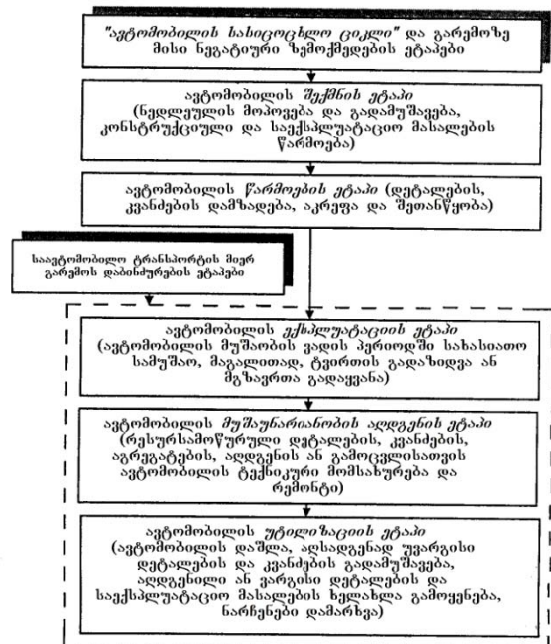 "ავტომობილის სასიცოცხლო ციკლი" და გარემოზე
მისი ნეგატიური ზემოქმედების ეტაპები
ავტომობილის შექმნის ეტაპი
(ნედლეულის მოპოვება და გადამუშავება,
კონსტრუქციული და საექსპლუატაციო მასალების
წარმოება)
ავტომობილის წარმოების ეტაპი (დეტალების,
კვანძების დამზადება, აკრეფა და შეთანწყობა)
საავტომობილო ტრანსპორტის მიერ
გარემოს დაბინძურების ეტაპები
ავტომობილის ექსპლუატაციის ეტაპი
(ავტომობილის მუშაობის ვადის პერიოდში სახასიათო
სამუშაო, მაგალითად, ტვირთის გადაზიდვა ან
მგზავრთა გადაყვანა)
ავტომობილის მუშაუნარიანობის აღდგენის ეტაპი
(რესურსამოწურული დეტალების, კვანძების,
აგრეგატების, აღდგენის ან გამოცვლისათვის
ავტომობილის ტექნიკური მომსახურება და
რემონტი)
ავტომობილის უტილიზაციის ეტაპი
(ავტომობილის დაშლა, აღსადგენად უვარგისი
დეტალების და კვანძების გადამუშავება,
აღდგენილი ან ვარგისი დეტალების და
საექსპლუატაციო მასალების ხელახლა გამოყენება,
ნარჩენები დამარხვა)